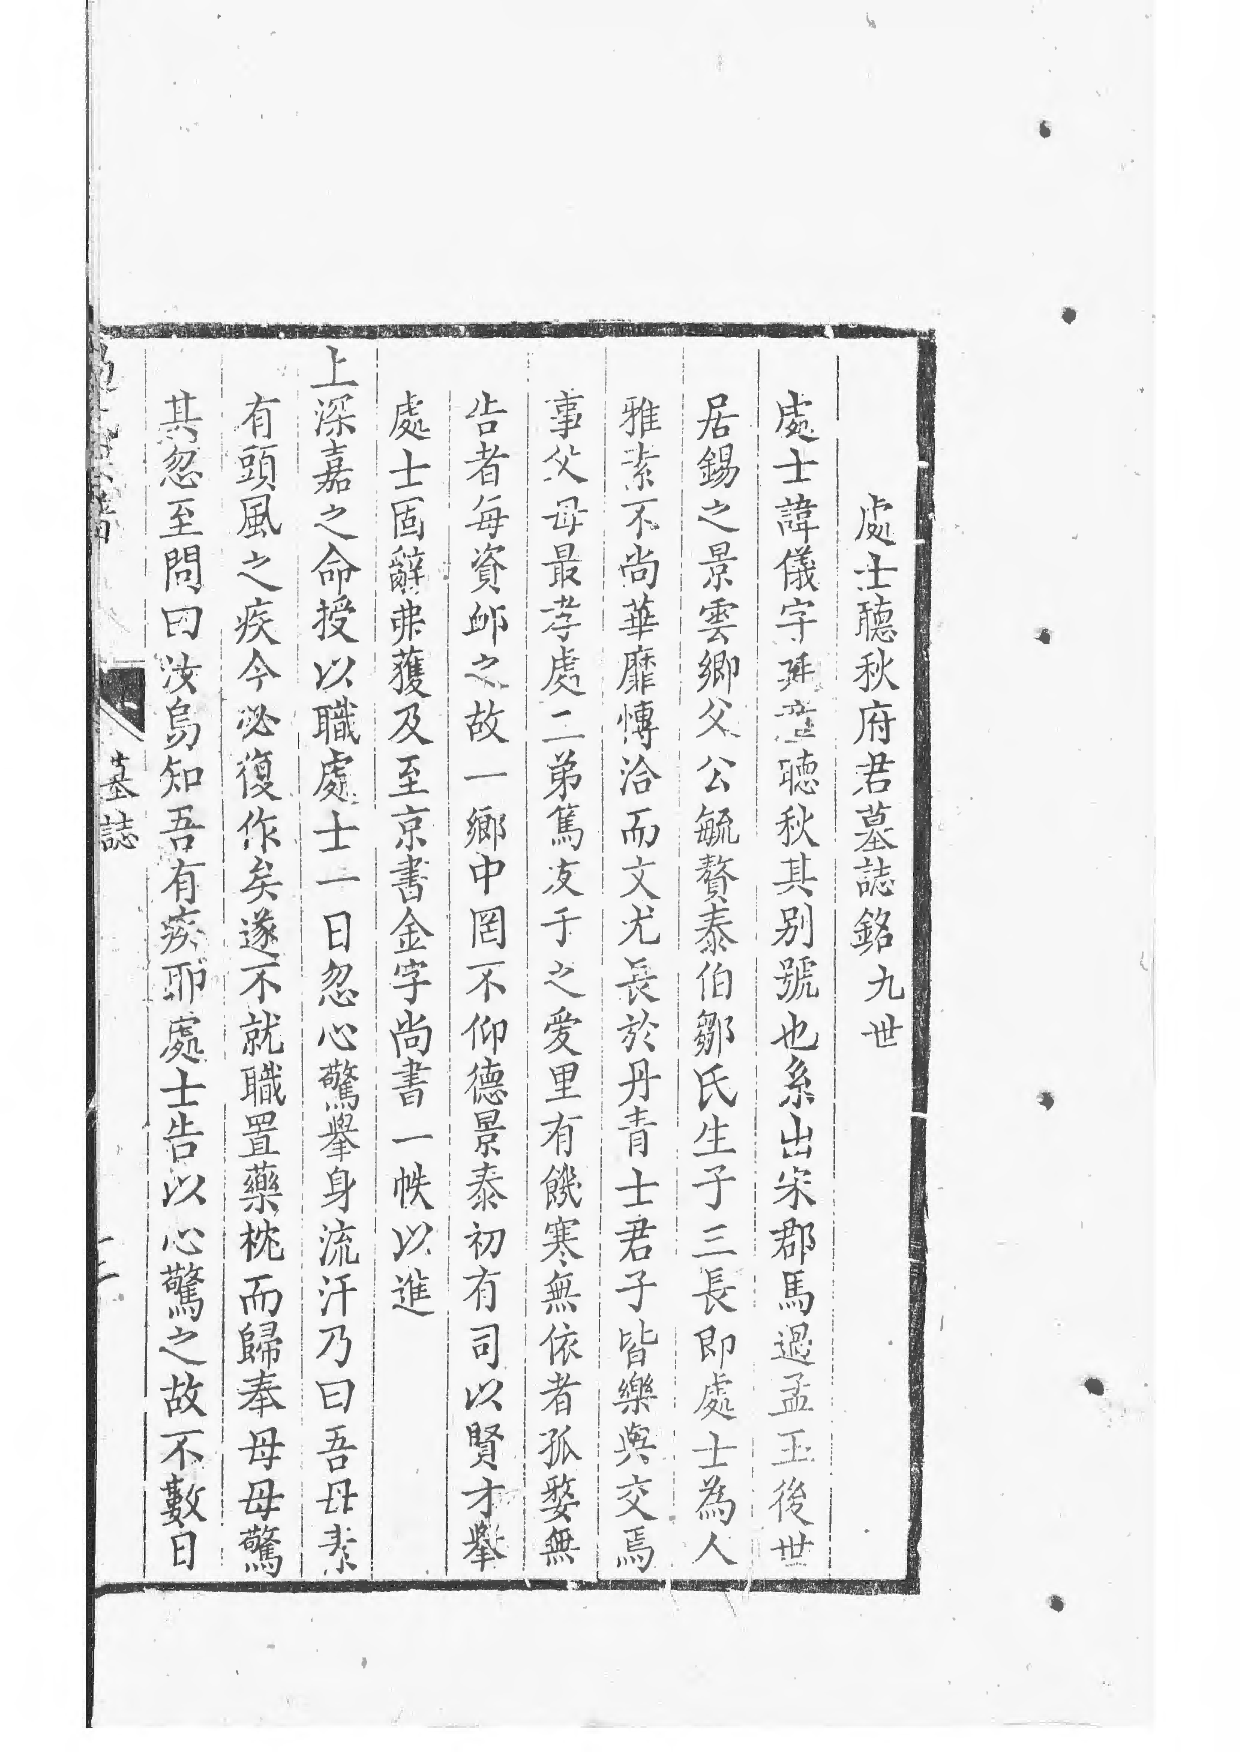 處士聽秋府君墓誌銘九世
處士諱儀字廷聽秋其別號也系出宋郡馬過孟玉後世
居錫之景雲鄉父公毓贅泰伯鄒氏生子三長即處士為人
雅素不尚華靡愽洽而文尤長於丹青士君子皆樂與交焉
事父母最孝處二弟篤友于之爱里有饑寒無依者孤婺無
告者每資䘏之故一鄉中罔不仰德景泰初有司以賢才舉
處士固辭弗獲及至京書金字尚書一帙以進
上深嘉之命授以職處士一日忽心驚舉身流汗乃曰吾母素
有頭風之疾今必復作矣遂不就職置藥枕而歸奉母母驚
其忽至問曰汝烏知吾有疾耶處士告以心驚之故不數日
墓誌